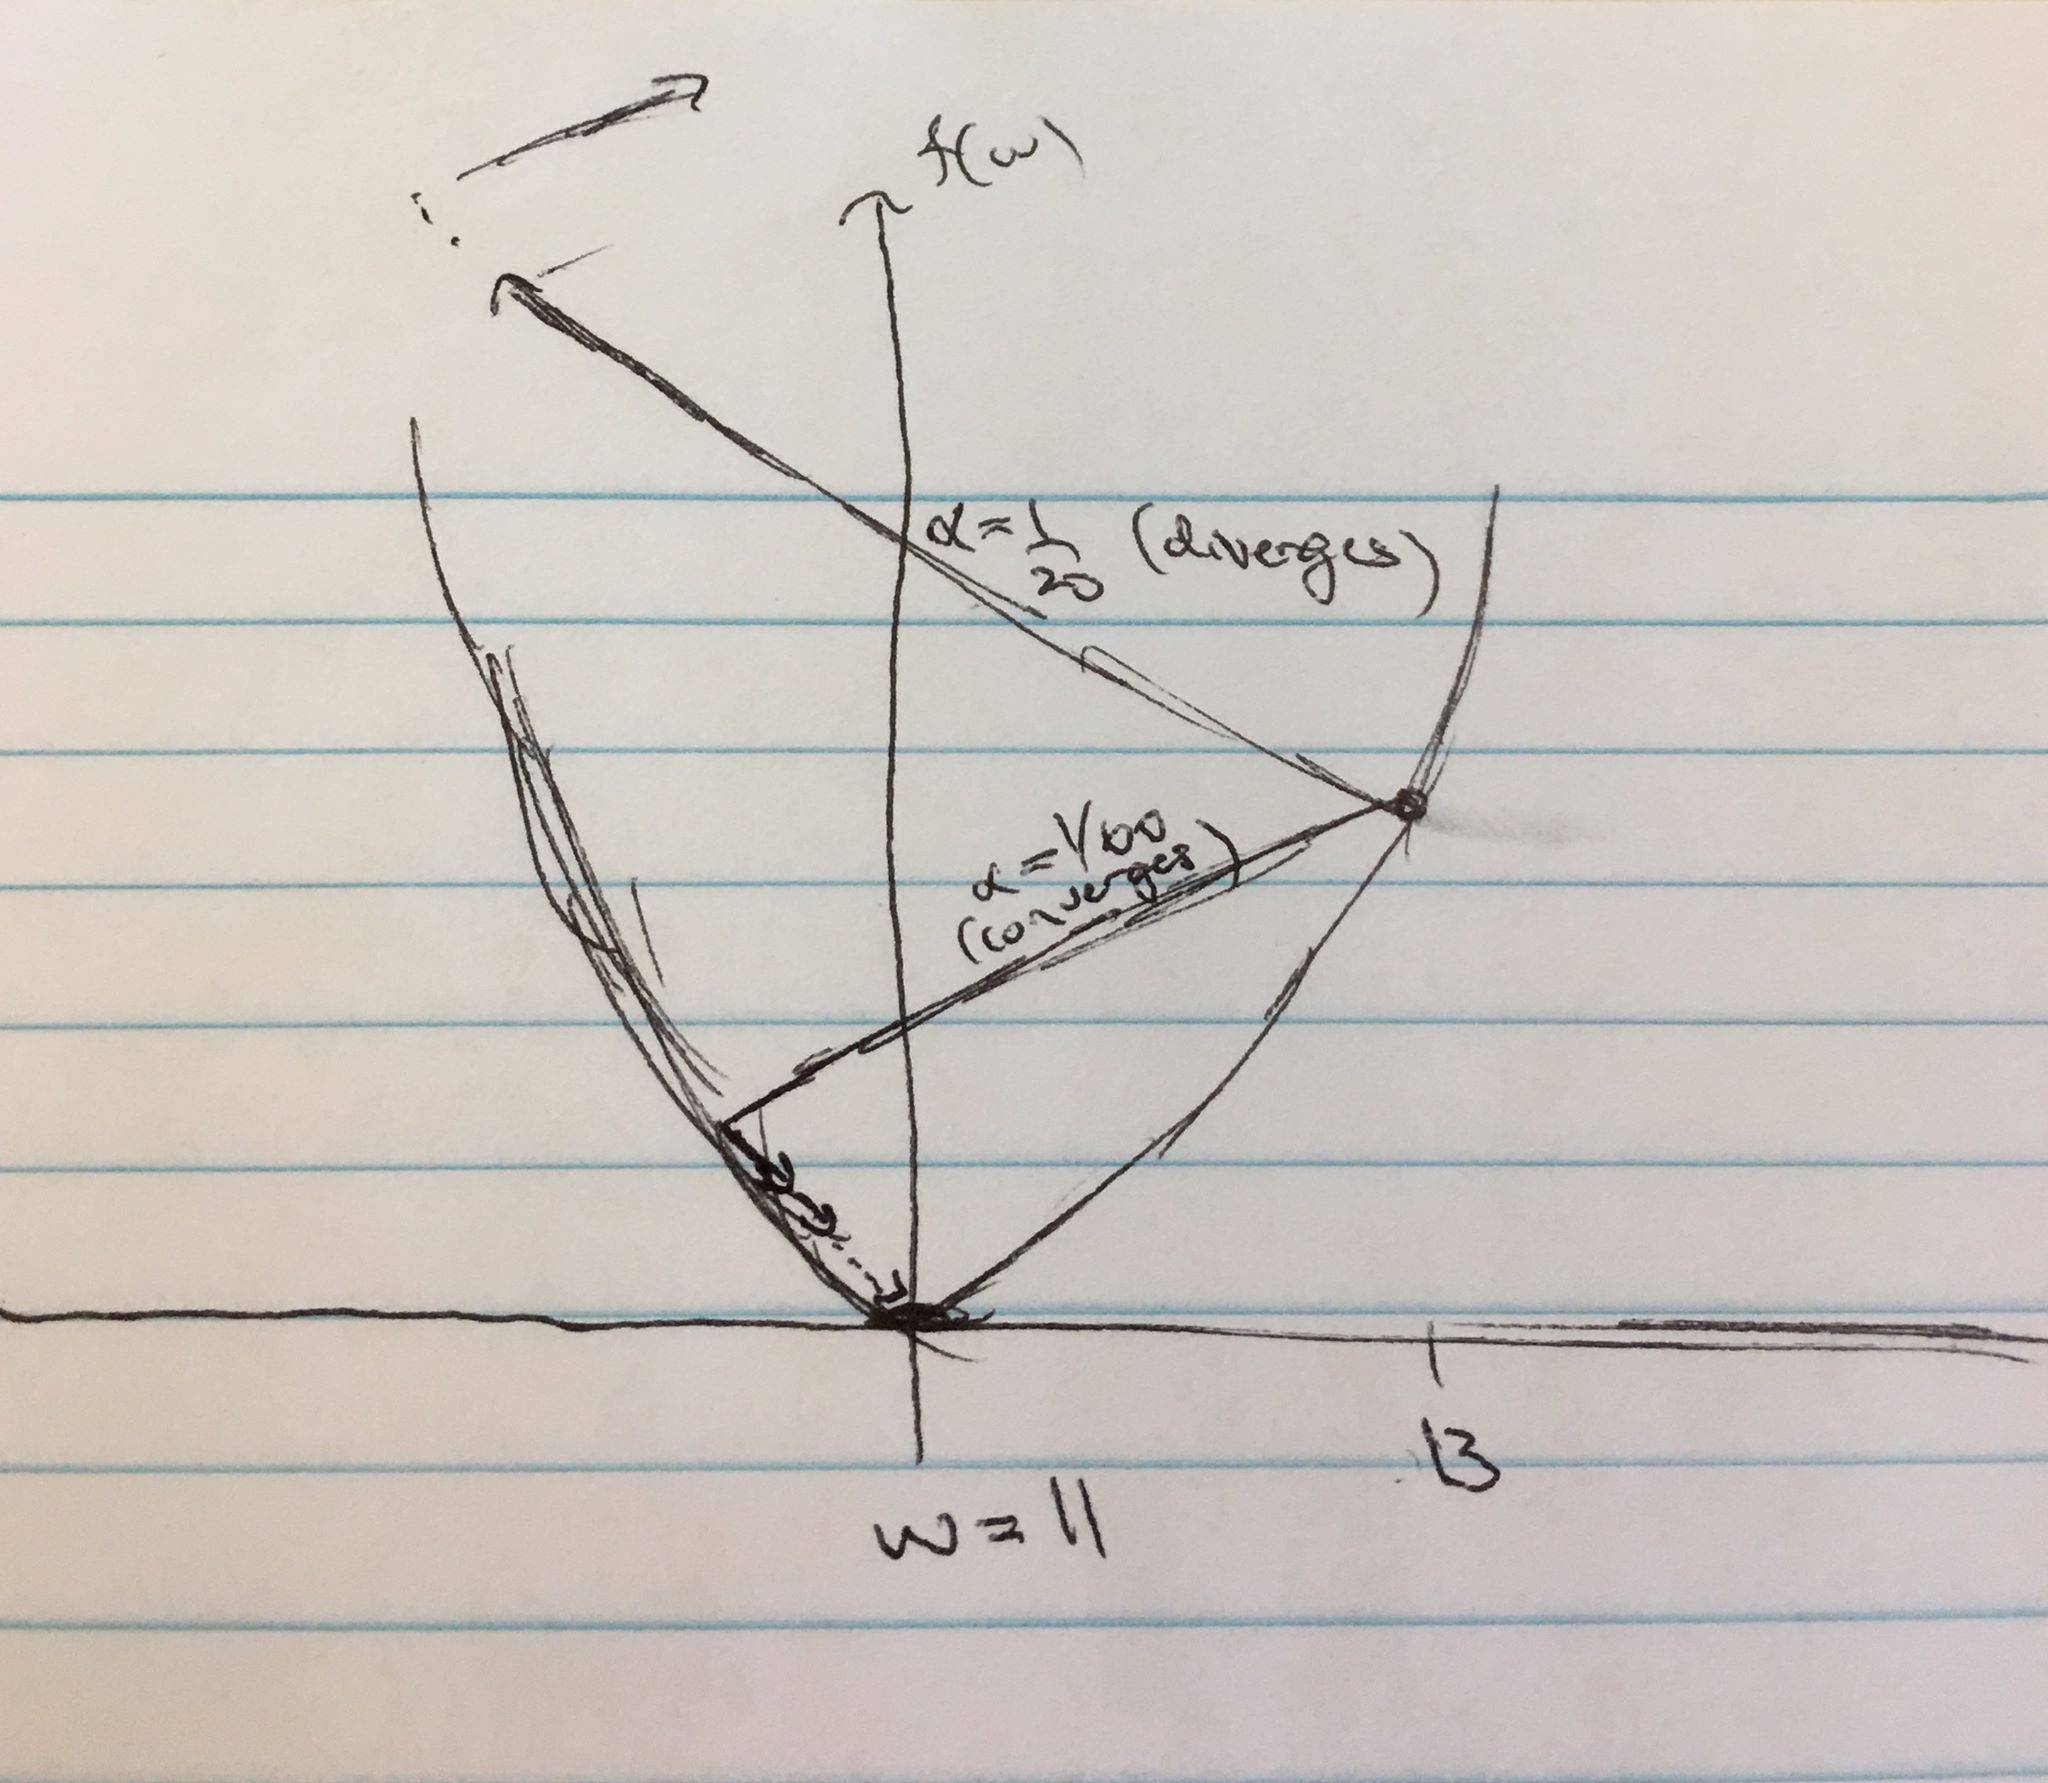 f(w)
α = 1/20 (diverges)
α = 1/100
(converges)
13
w = 11